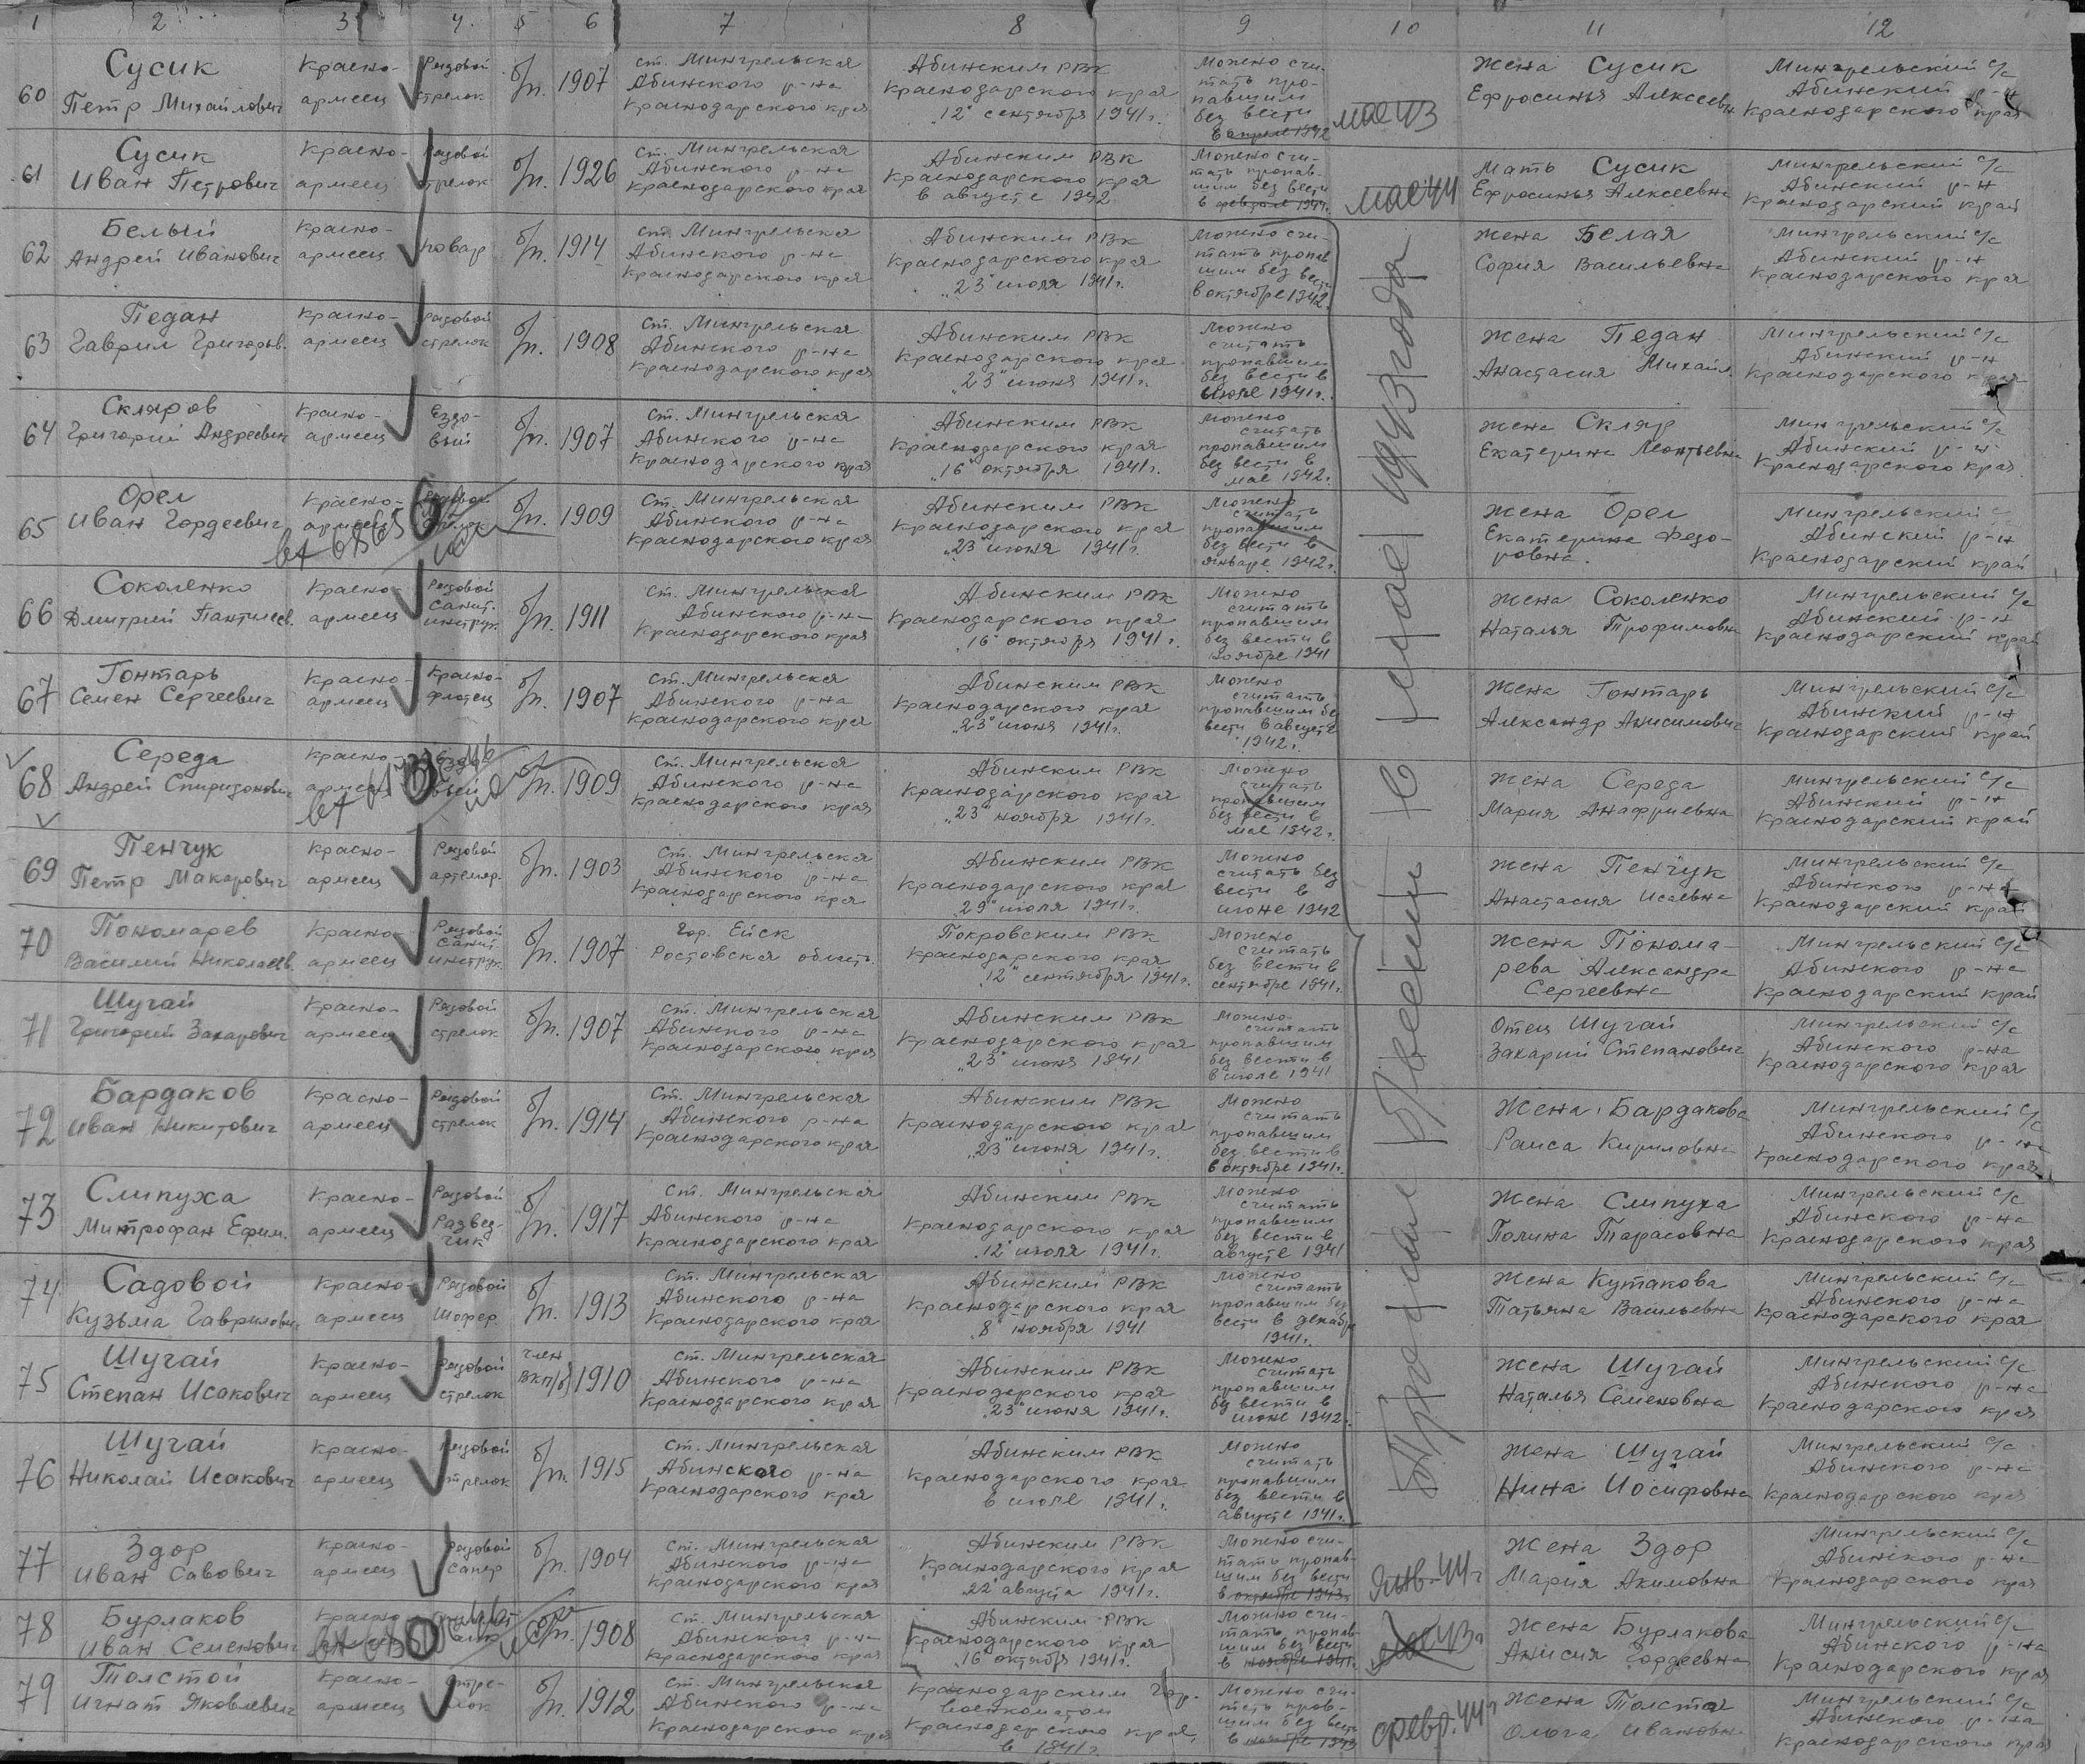 1 2 3 4. 5 6 7 8 9 10 11 12
60 Сусик Петр Михайлович Красно-армеец Рядовой стрелок б/п. 1907 ст. Мингрельская Абинского р-на Краснодарского края Абинским РВК Краснодарского края „12" сентября 1941г. Можно счи-тать про-павшим без вести в апреле 1942 мае 43 Жена Сусик Ефросинья Алексеевн Мингрельский с/с Абинский р-н Краснодарского края
61 Сусик Иван Петрович Красно-армеец Рядовой стрелок б/п. 1926 ст. Мингрельская Абинского р-на Краснодарского края Абинским РВК Краснодарского края в августе 1942 Можно счи-тать пропав-шим без вести в феврале 1944. мае 44 Мать Сусик Ефросинья Алексеевна Мингрельский с/с Абинский р-н Краснодарский край
62 Белый Андрей Иванович Красно-армеец повар б/п. 1914 ст. Мингрельская Абинского р-на Краснодарского края Абинским РВК Краснодарского края „23" июля 1941г. Можно счи-тать пропав шим без вести в октябре 1942. Жена Белая София Васильевна Мингрельский с/с Абинский р-н Краснодарского края
63 Педан Гаврил Григорьв. Красно-армеец Рядовой стрелок б/п. 1908 ст. Мингрельская Абинского р-на Краснодарского края Абинским РВК Краснодарского края „23" июня 1941г. Можно считать пропавшим без вести в июле 1941г. Жена Педан Анастасия Михайл. Мингрельский с/с Абинский р-н Краснодарского края
64 Скляров Григорий Андреевич Красно-армеец Ездо-вый б/п. 1907 ст. Мингрельская Абинского р-на Краснодарского края Абинским РВК Краснодарского края „16" октября 1941г. Можно считать пропавшим без вести в мае 1942г. Жена Скляр Екатерина Леонтьевна Мингрельский с/с Абинский р-н Краснодарского края
65 Орел Иван Гордеевич Красно-армеец Рядовой стрелок б/п. 1909 ст. Мингрельская Абинского р-на Краснодарского края Абинским РВК Краснодарского края „23" июня 1941г. Можно считать пропавшим без вести в январе 1942г. Жена Орел Екатерина Федо-ровна. Мингрельский с/с Абинский р-н Краснодарский край
66 Соколенко Дмитрий Пантилеев. Красно-армеец Рядовой санит. инструк. б/п. 1911 ст. Мингрельская Абинского р-на Краснодарского края Абинским РВК Краснодарского края „16" октября 1941г. Можно считать пропавшим без вести в ноябре 1941 Жена Соколенко Наталья Трофимовна Мингрельский с/с Абинский р-н Краснодарский край
67 Гонтарь Семен Сергеевич Красно-армеец Красно-флотец б/п. 1907 ст. Мингрельская Абинского р-на Краснодарского края Абинским РВК Краснодарского края „23" июня 1941г. Можно считать пропавшим без вести в августе 1942г. Жена Гонтарь Александр Анисимович Мингрельский с/с Абинский р-н Краснодарский край
68 Середа Андрей Спиридонович Красно-армеец Ездовый б/п. 1909 ст. Мингрельская Абинского р-на Краснодарского края Абинским РВК Краснодарского края „23" ноября 1941г. Можно считать пропавшим без вести в мае 1942г. Жена Середа Мария Анафриевна Мингрельский с/с Абинский р-н Краснодарский край
69 Пенчук Петр Макарович Красно-армеец Рядовой артелер. б/п. 1903 ст. Мингрельская Абинского р-на Краснодарского края Абинским РВК Краснодарского края „29" июля 1941г. Можно считать без вести в июне 1942 Жена Пенчук Анастасия Исаевна Мингрельский с/с Абинского р-на Краснодарский край
70 Пономарев Василий Николаев. Красно-армеец Рядовой санит. инструк. б/п. 1907 гор. Ейск Ростовская область. Покровским РВК Краснодарского края „12" сентября 1941г. Можно считать без вести в сентябре 1941г. Жена Понома-рева Александра Сергеевна Мингрельский с/с Абинского р-на Краснодарский край
71 Шугай Григорий Захарович Красно-армеец Рядовой стрелок б/п. 1907 ст. Мингрельская Абинского р-на Краснодарского края Абинским РВК Краснодарского края „23" июня 1941 Можно считать пропавшим без вести в в июле 1941 Отец Шугай Захарий Степанович Мингрельский с/с Абинского р-на Краснодарского края
72 Бардаков Иван Никитович Красно-армеец Рядовой стрелок б/п. 1914 ст. Мингрельская Абинского р-на Краснодарского края Абинским РВК Краснодарского края „23" июня 1941г. Можно считать пропавшим без вести в в октябре 1941г. Жена Бардакова Раиса Кириловна Мингрельский с/с Абинского р-на Краснодарского края
73 Слипуха Митрофан Ефим. Красно-армеец Рядовой Развед-чик б/п. 1917 ст. Мингрельская Абинского р-на Краснодарского края Абинским РВК Краснодарского края „12" июля 1941г. Можно считать пропавшим без вести в августе 1941 Жена Слипуха Полина Тарасовна Мингрельский с/с Абинского р-на Краснодарского края
74 Садовой Кузьма Гаврилович Красно-армеец Рядовой Шофер б/п. 1913 ст. Мингрельская Абинского р-на Краснодарского края Абинским РВК Краснодарского края „8" ноября 1941 Можно считать пропавшим без вести в декабре 1941г. Жена Кутакова Татьяна Васильевна Мингрельский с/с Абинского р-на Краснодарского края
75 Шугай Степан Исакович Красно-армеец Рядовой стрелок член ВКП/б/ 1910 ст. Мингрельская Абинского р-на Краснодарского края Абинским РВК Краснодарского края „23" июня 1941г. Можно считать пропавшим без вести в июне 1942г. Жена Шугай Наталья Семеновна Мингрельский с/с Абинского р-на Краснодарского края
76 Шугай Николай Исакович Красно-армеец Рядовой стрелок б/п. 1915 ст. Мингрельская Абинского р-на Краснодарского края Абинским РВК Краснодарского края в июле 1941г. Можно считать пропавшим без вести в августе 1941г. Жена Шугай Нина Иосифовна Мингрельский с/с Абинского р-на Краснодарского края
Пропали без вести в мае 1943 года
77 Здор Иван Савович Красно-армеец Рядовой Сапер б/п. 1904 ст. Мингрельская Абинского р-на Краснодарского края Абинским РВК Краснодарского края „22" августа 1941г. Можно счи-тать пропав-шим без вести в октябре 1943г. янв-44г Жена Здор Мария Акимовна Мингрельский с/с Абинского р-на Краснодарского края
78 Бурлаков Иван Семенович Красно-армеец б/п. 1908 ст. Мингрельская Абинского р-на Краснодарского края Абинским РВК Краснодарского края „16" октября 1941г. Можно счи-тать пропав-шим без вести в ноябре 1941г. мае 43г Жена Бурлакова Анисия Гордеевна Мингрельский с/с Абинского р-на Краснодарского края
79 Толстой Игнат Яковлевич Красно-армеец стре-лок б/п. 1912 ст. Мингрельская Абинского р-на Краснодарского края Краснодарским Гор. военкоматом Краснодарского края, в 1941г. Можно счи-тать пропав-шим без вести в ноябре 1943 февр. 44г Жена Толстая Ольга Ивановн Мингрельский с/с Абинского р-на Краснодарского края